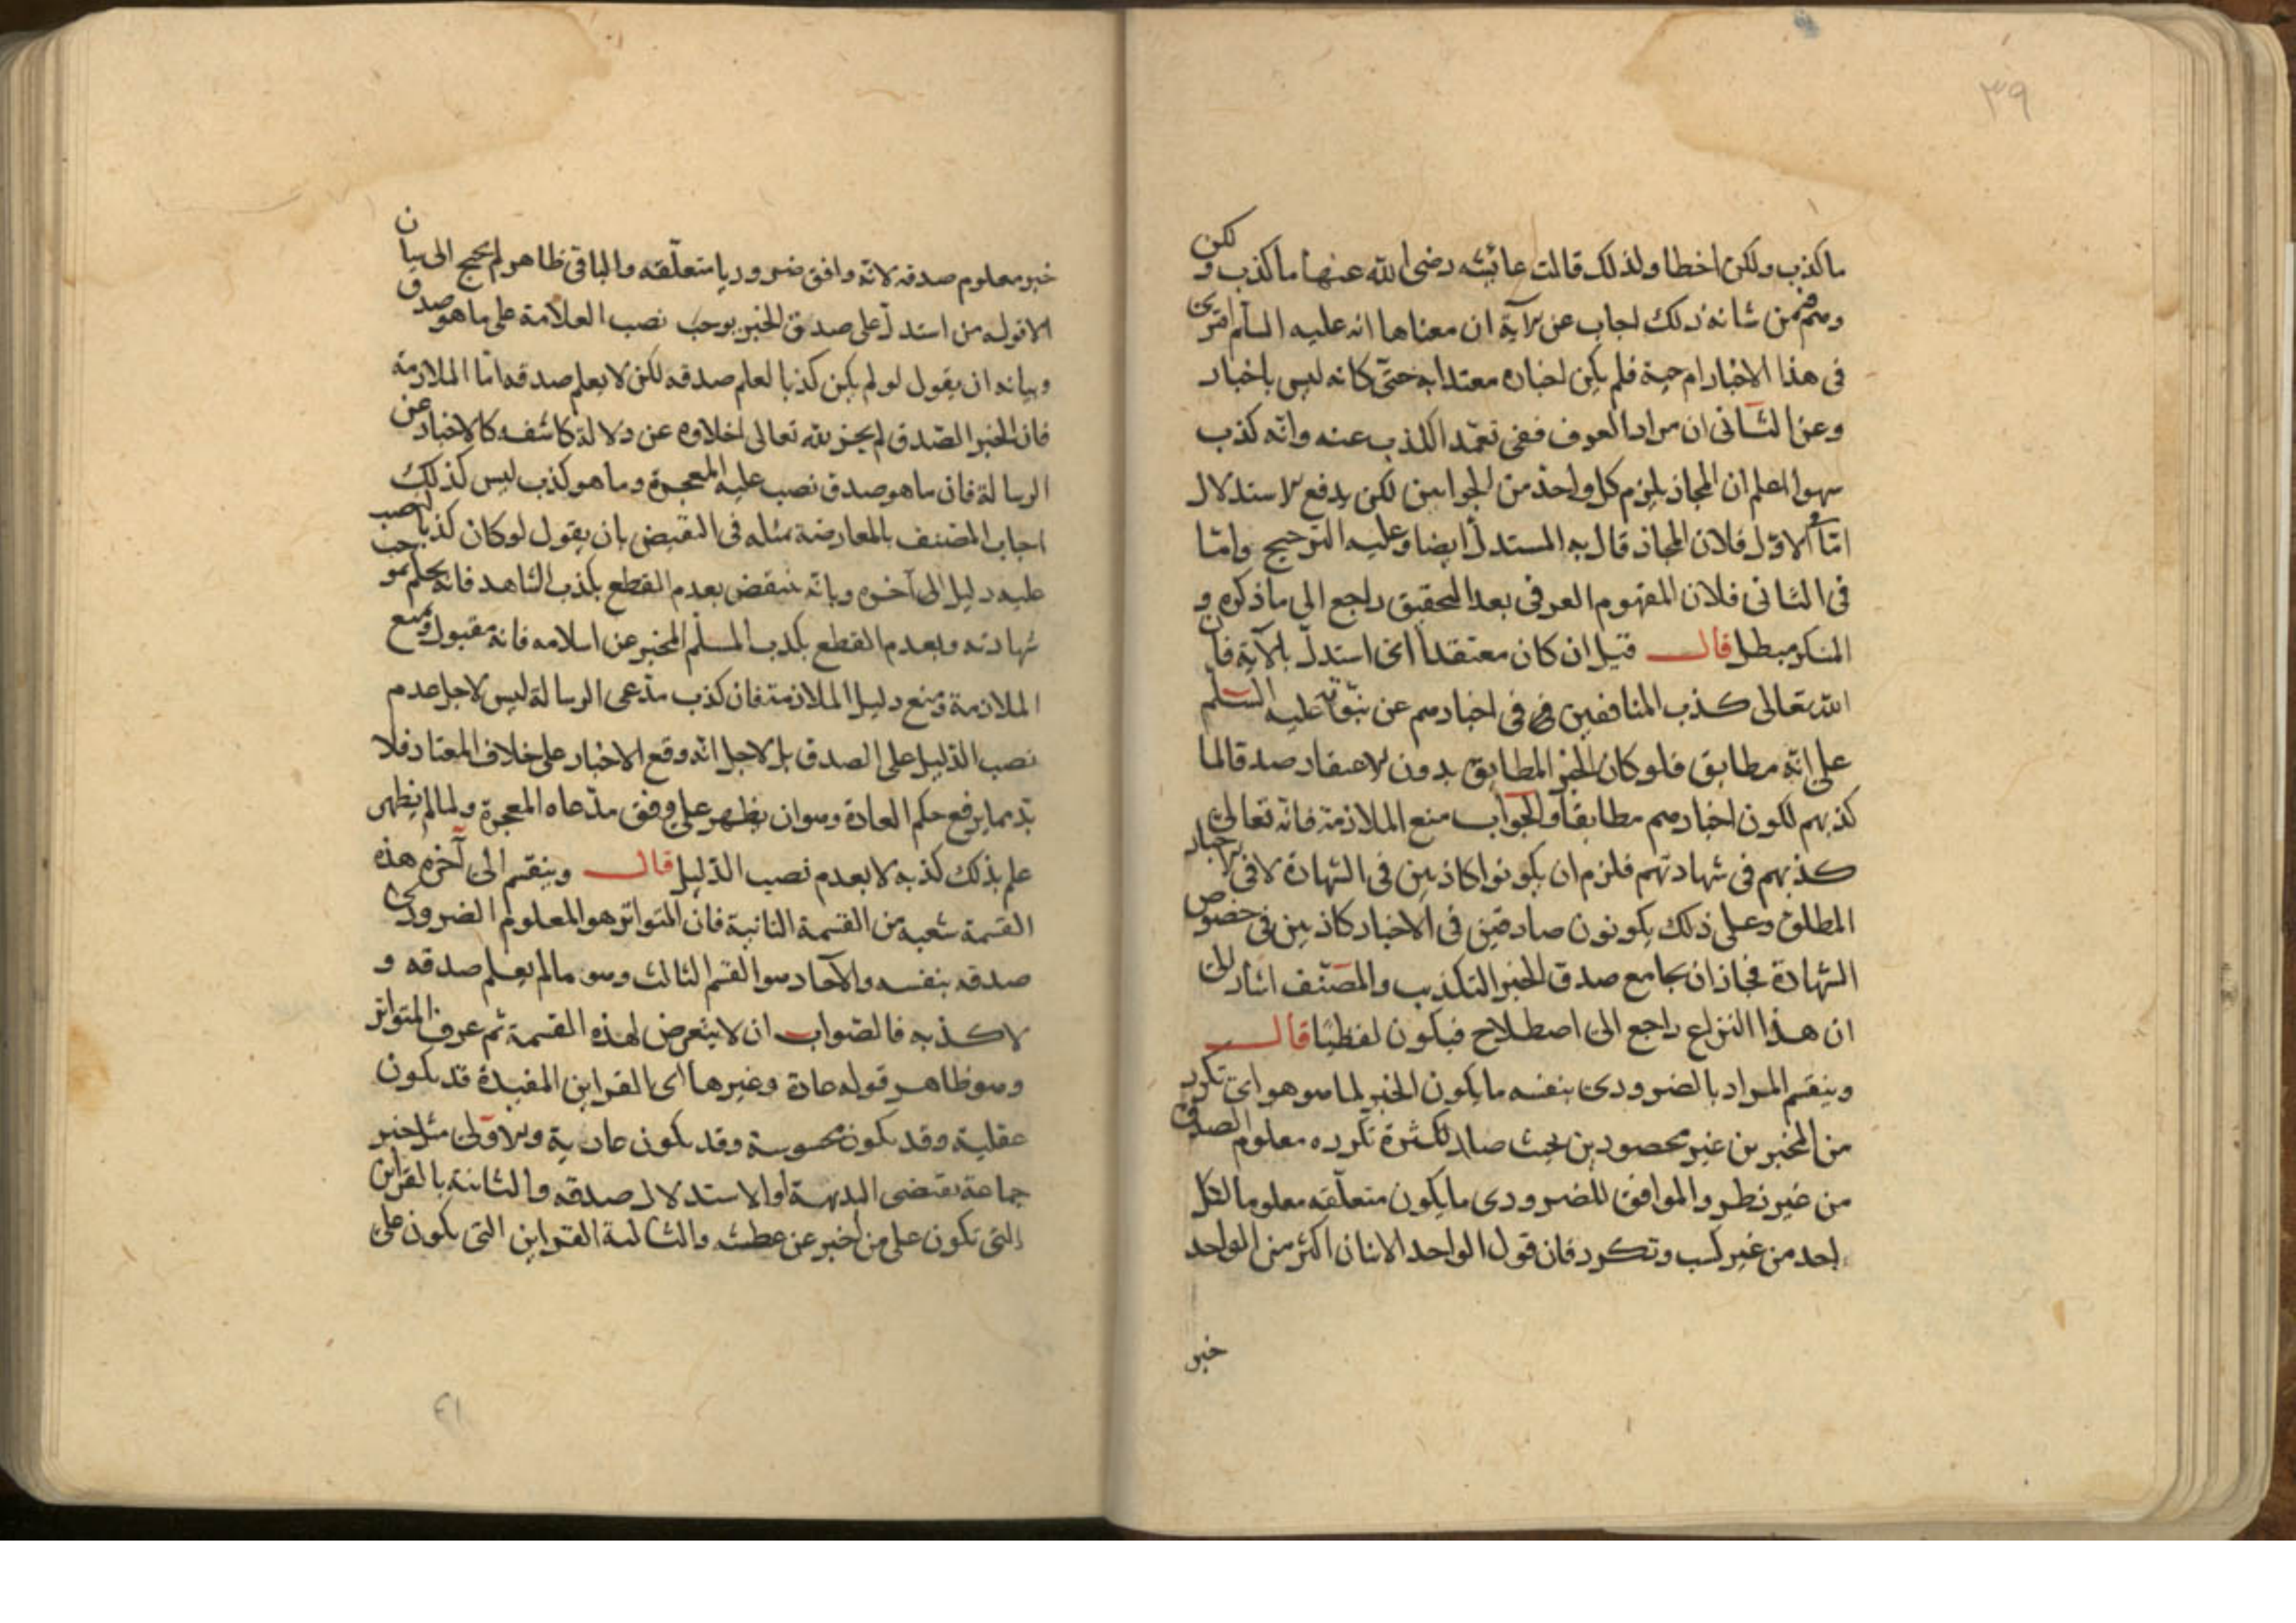 ٣٩
ما كذب ولكن اخطا ولذلك قالت عائشه رضى الله عنها ما كذب ولكن
وهم فمن شانه ذلك اجاب عن الآية ان معناها انه عليه السلم افترى
فى هذا الاخبار ام جنة فلم يكن اخباره معتدا به حتى كانه ليس باخبار
وعن الثانى ان مراد العرف ففى تعمد الكذب عنه وانه كذب
سهوا اعلم ان المجاز يلزم كل واحد من الجوابين لكن يدفع الاستدلال
امّا الاوّل فلان المجاز قال به المستدل ايضا وعليه الترجيح وامّا
فى الثانى فلان المفهوم العرفى بعد التحقيق راجع الى ما ذكره و
المنكر مبطل قال قيل ان كان معتقدا الخ استدلّ بالآية فان
الله تعالى كذب المنافقين فى اخبارهم عن نبوّته عليه السلم
على انّه مطابق فلو كان الخبر المطابق بدون الاعتقاد صدقا لما
كذبهم لكون اخبارهم مطابقا والجواب منع الملازمة فانه تعالى
كذبهم فى شهادتهم فلزم ان يكونوا كاذبين فى الشهادة لا فى الاخبار
المطلق وعلى ذلك يكونون صادقين فى الاخبار كاذبين فى خصوص
الشهادة فجاز ان يجامع صدق الخبر التكذيب والمصنّف اشار الى
ان هذا النزاع راجع الى اصطلاح فيكون لفظيّا قال
وينقسم المراد بالضرورى بنفسه ما يكون الخبر لما هو هو اى تكرر
من المخبرين غير محصورين بحيث صار لكثرة تكرره معلوم الصدق
من غير نظر والموافق للضرورى ما يكون متعلّقه معلوما لكل
احد من غير كسب وتكرر فان قول الواحد الاثنان اكثر من الواحد
خبر
خبر معلوم صدقه لانّه وافق ضروريا متعلّقه والباقى ظاهر لم يحتج الى بيان
الا قوله من استدلّ على صدق الخبر بوجب نصب العلامة على ما هو صدق
وبيانه ان يقول لو لم يكن كذبا لعلم صدقه لكن لا يعلم صدقه امّا الملازمة
فان الخبر الصّدق لم يجز لله تعالى اخلاوه عن دلالة كاشفه كالاخبار عن
الرسالة فان ما هو صدق نصب عليه المعجزة وما هو كذب ليس كذلك
اجاب المصنف بالمعارضة بمثله فى النقيض بان يقول لو كان كذبا لنصب
عليه دليل الى آخره وبانّه ينتقض بعدم القطع بكذب الشاهد فانه يحكم بموجب
شهادته وبعدم القطع بكذب المسلم المخبر عن اسلامه فانه مقبول ومنع
الملازمة ومنع دليل الملازمة فان كذب مدّعى الرسالة ليس لاجل عدم
نصب الدّليل على الصدق بل لاجل انّه وقع الاخبار على خلاف المعتاد فلا
بدّ مما يرفع حكم العادة وهو ان يظهر على وفق مدّعاه المعجزة ولما لم يظهر
علم بذلك كذبه لا بعدم نصب الدّليل قال وينقسم الى آخره هذه
القسمة شعبة من القسمة الثانية فان المتواتر هو المعلوم الضرورى
صدقه بنفسه والآحاد هو القسم الثالث وهو ما لم يعلم صدقه و
لا كذبه فالصّواب ان لا يتعرض لهذه القسمة ثم عرف المتواتر
وهو ظاهر قوله عادة وغيرها اى القراين المفيدة قد يكون
عقلية وقد يكون محسوسة وقد يكون عادية والاولى مثل خبر
جماعة يقتضى البديهة او الاستدلال صدقه والثانية بالقراين
التى تكون على من اخبر عن عطشه والثالثة القراين التى يكون على
٤١